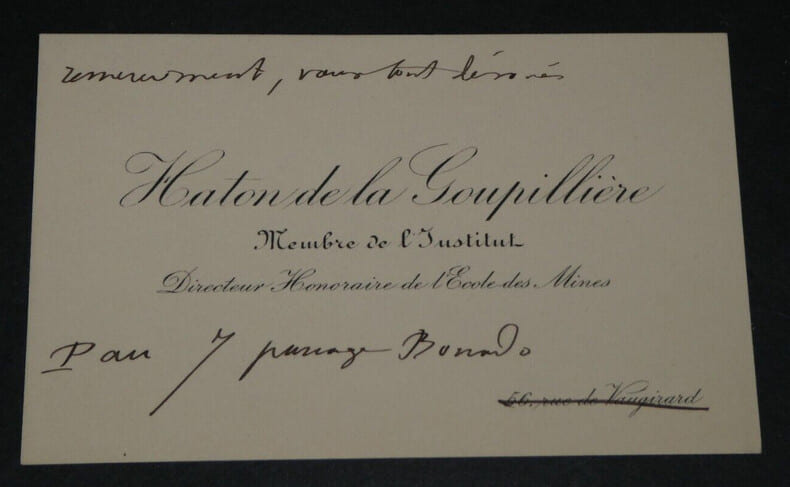 remerciement, vœux tout dévoués
Haton de la Goupillière
Membre de l'Institut
Directeur Honoraire de l'Ecole des Mines
Pau 7 passage
56, rue de Vaugirard